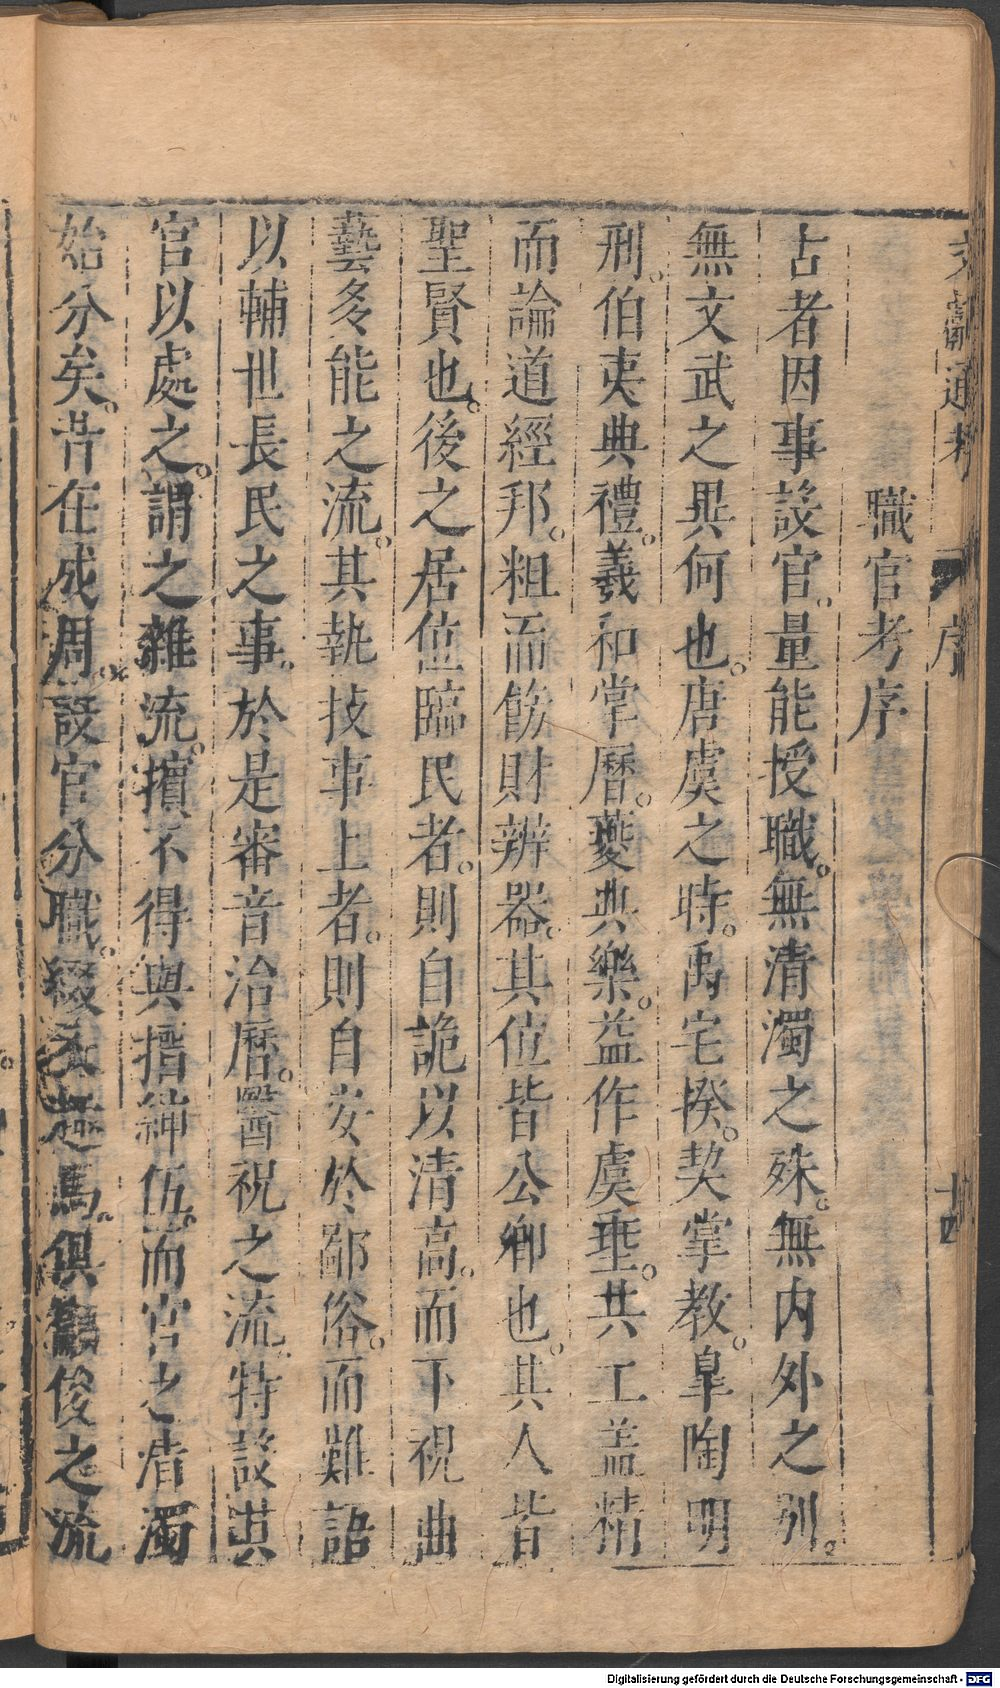 文獻通考 序 十四
職官考序
古者因事設官。量能授職。無清濁之殊。無内外之別。
無文武之異何也。唐虞之時。禹宅揆。契掌教。臯陶明
刑。伯夷典禮。羲和掌曆。夔典樂。益作虞垂。共工蓋精
而論道經邦。粗而飭財辨器。其位皆公卿也。其人皆
聖賢也。後之居位臨民者。則自詭以清高。而下視曲
藝多能之流。其執技事上者。則自安於鄙俗。而難語
以輔世長民之事。於是審音治曆。醫祝之流。特設其
官以處之。謂之雜流。擯不得與搢紳伍。而官之清濁
始分矣。昔在成周。設官分職。綴衣趣馬。俱籲俊之流
Digitalisierung gefördert durch die Deutsche Forschungsgemeinschaft - DFG